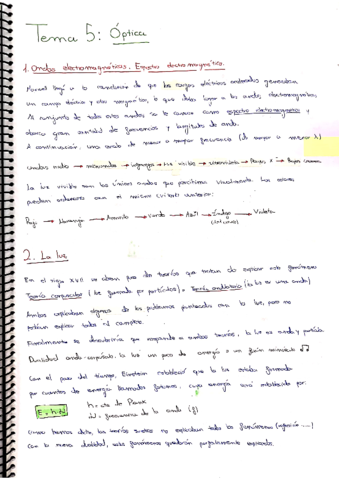 Tema 5: Óptica
1. Ondas electromagnéticas. Espectro electromagnético.
Maxwell llegó a la conclusión de que las cargas eléctricas aceleradas generaban
un campo eléctrico y otro magnético, lo que daba lugar a las ondas electromagnéticas.
Al conjunto de todas estas ondas se le conoce como espectro electromagnético y
abarca gran cantidad de frecuencias y longitudes de onda.
A continuación, una escala de menor a mayor frecuencia (de mayor a menor λ)
Ondas radio → microondas → infrarrojos → luz visible → ultravioleta → Rayos X → Rayos Gamma
La luz visible son las únicas ondas que percibimos visualmente. Los colores
quedan ordenados con el mismo criterio anterior:
Rojo → Naranja → Amarillo → Verde → Azul → Índigo → Violeta
2. La luz
En el siglo XVII se crean dos teorías que tratan de explicar este fenómeno:
Teoría corpuscular (luz formada por partículas) y Teoría ondulatoria (la luz es una onda)
Ambas explicaban algunos de los problemas planteados con la luz, pero no
podían explicar todos al completo.
Finalmente se descubriría que responde a ambas teorías, la luz es onda y partícula
Dualidad onda-corpúsculo.
Con el paso del tiempo, Einstein estableció que la luz estaba formada
por cuantos de energía llamados fotones, cuya energía está establecida por:
E = h·ν
h = cte de Planck
ν = frecuencia de la onda (f)
Como hemos dicho, las teorías sueltas no explicaban todos los fenómenos
Con la nueva dualidad, estos fenómenos quedarían perfectamente explicados.